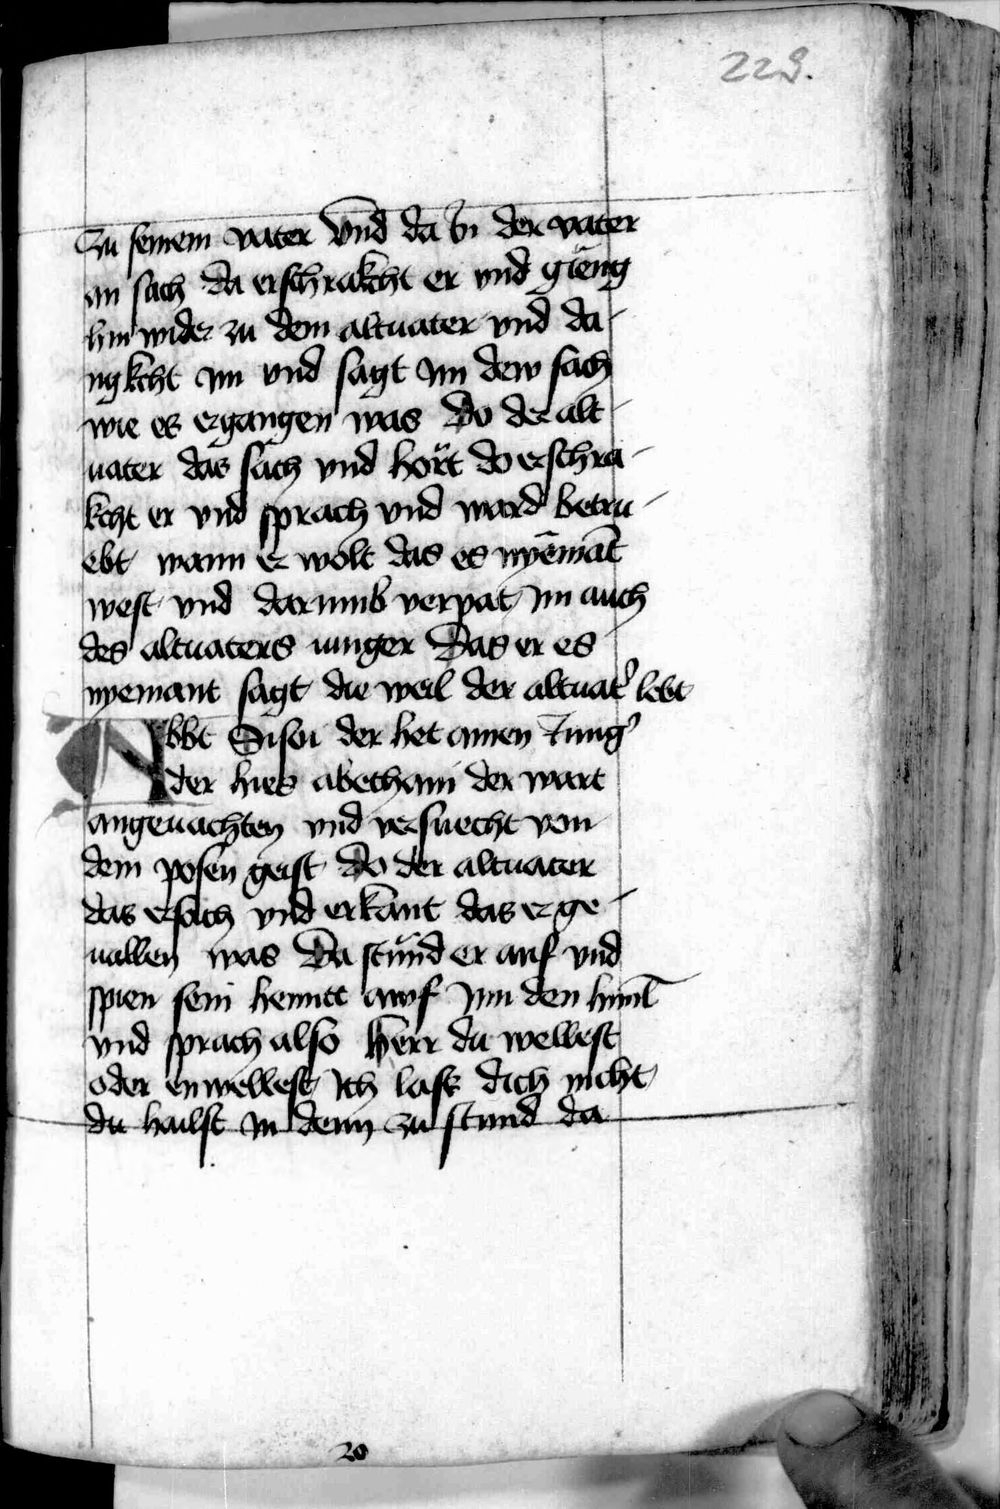 229.
Zu seinem vater Vnd da in der vater
an sach da erschrakcht er vnd gieng
hin wider zu dem altuater vnd da-
ngkcht im vnd sagt im dew sach
wie es ergangen was Do der alt-
uater das sach vnd hört do erschra-
kcht er vnd sprach vnd ward betru-
ebt wann er wolt das es nyemāt
west vnd darumb verpat im auch
des altuaters iunger Das er es
nyemant sagt die weil der altuat' lebt
Abbt Sisoi der het ainen Jung'
der hies abetham der wart
angeuachten vnd versuecht von
dem posen geist Do der altuater
das ersach vnd erkant das er ge-
uallen was Da stund er auf vnd
spien sein hennt awf Inn den himl
vnd sprach also Herr du wellest
oder enwellest Ich lass dich nicht
du hailst in denn zu stund da
20